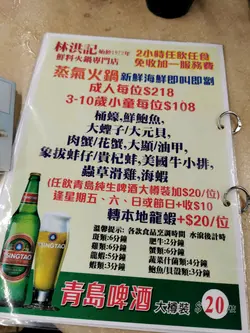 林洪記
始創1977年
鮮料火鍋專門店
2小時任飲任食
免收加一服務費
蒸氣火鍋 新鮮海鮮即叫即劏
成人每位$218
3-10歲小童每位$108
桶蠔,鮮鮑魚,
大蟶子/大元貝,
肉蟹/花蟹,大顯/油甲,
象拔蚌仔/貴杞蚌,美國牛小排,
蟲草滑雞,海蝦
(任飲青島純生啤酒大樽裝加$20/位)
逢星期五、六、日或節日+收$10
轉本地龍蝦 +$20/位
溫馨提示: 各款食品烹調時間 水滾後計時
蜆類:6分鐘
雞類:6分鐘
龍類:5分鐘
蝦類:3分鐘
肥牛:2分鐘
海斑:6分鐘
蠔類:4分鐘
鮑魚/貝類:3分鐘
TSINGTAO
TSINGTAO
青島啤酒 大樽裝 $20